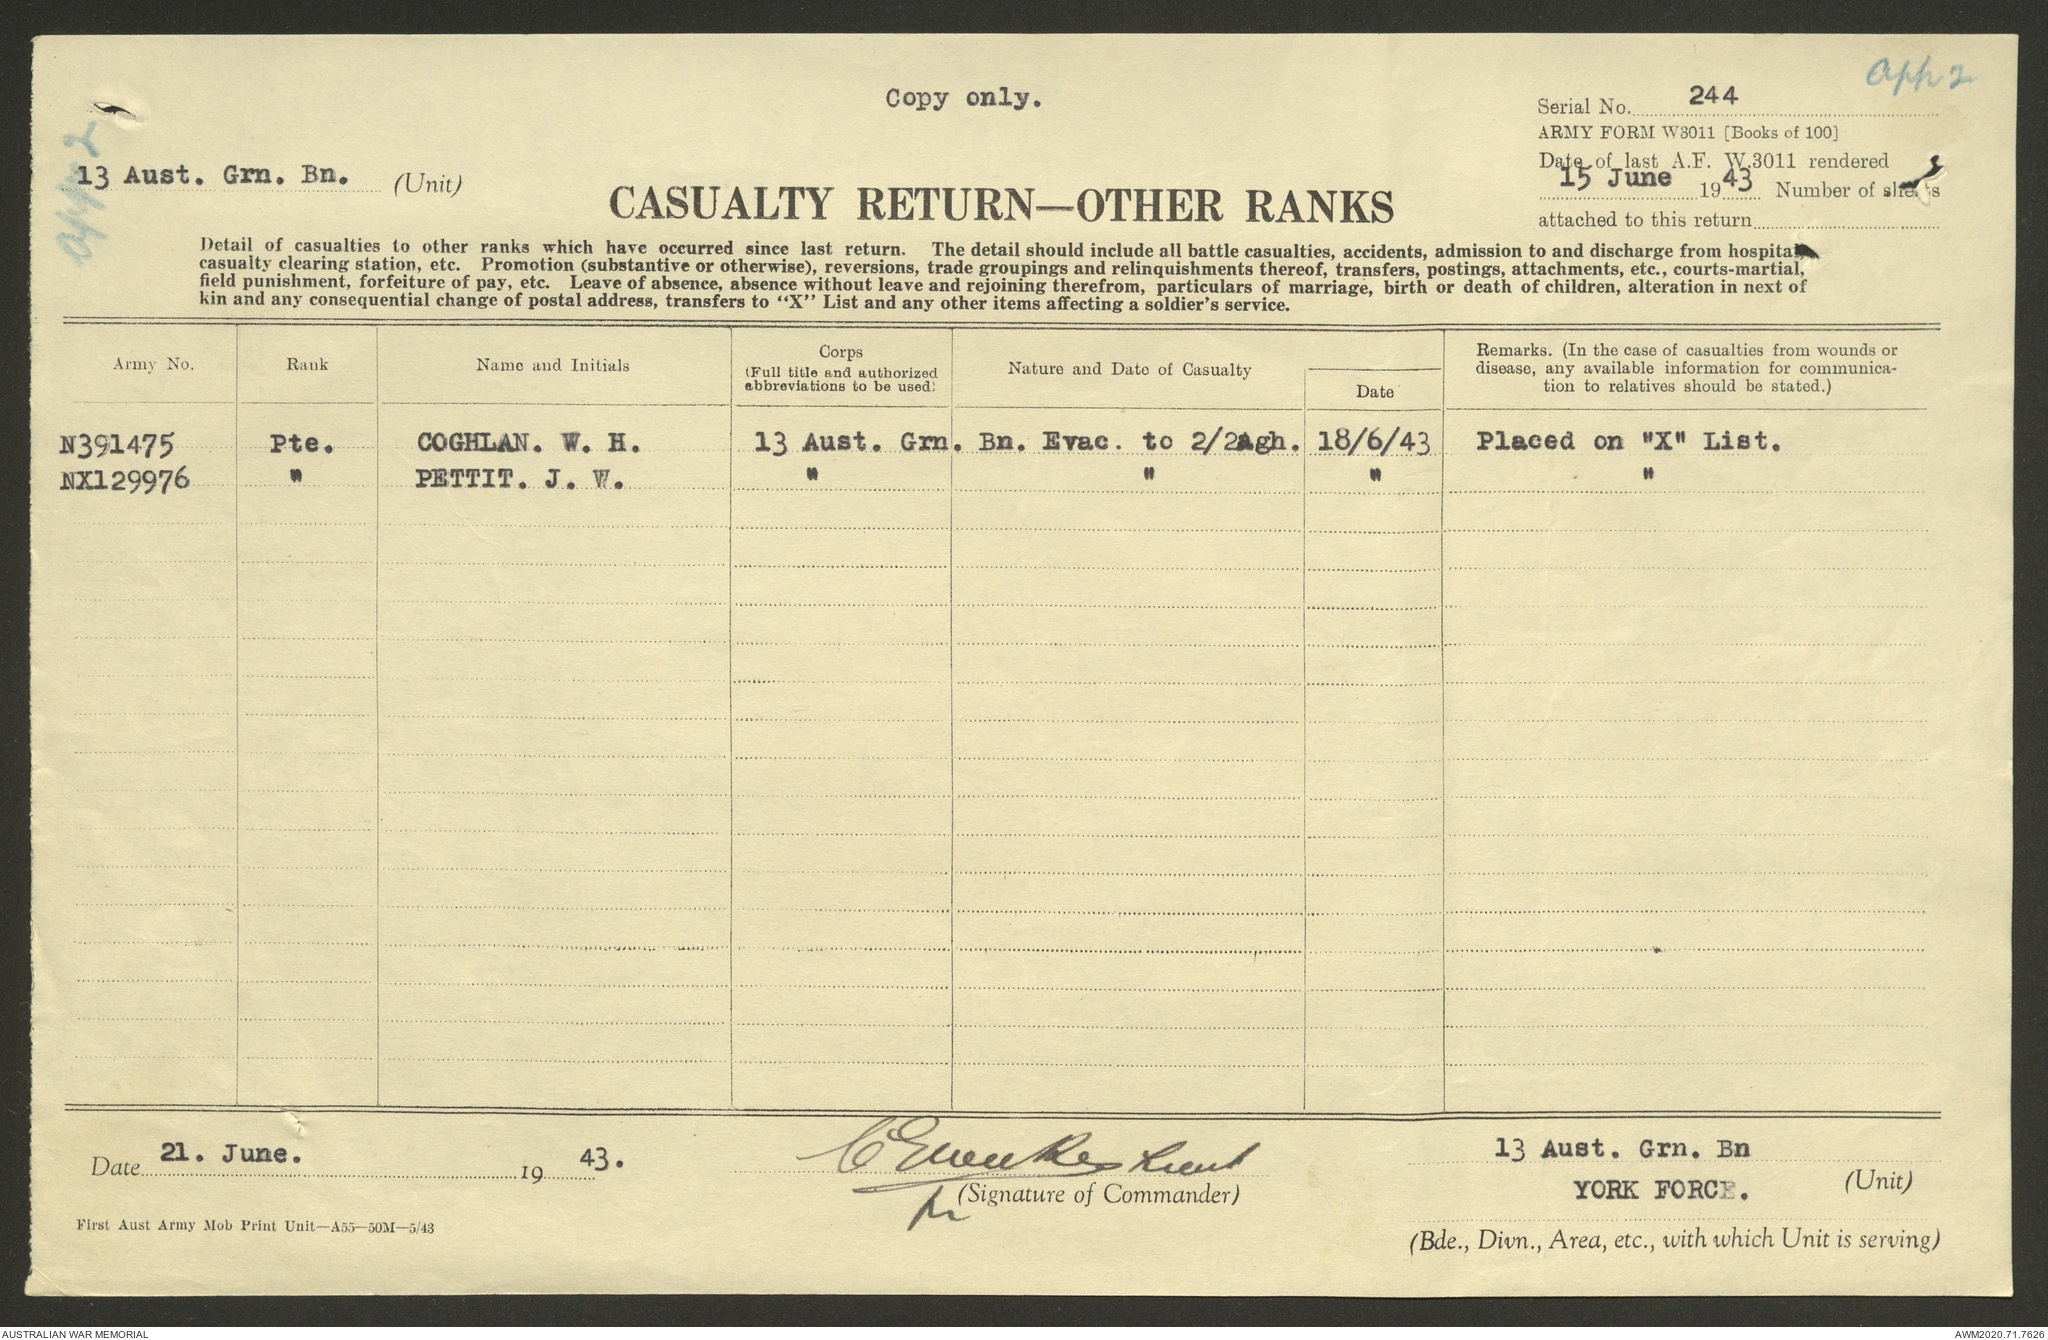 App 2
App 2
Copy only.
Serial No. 244
ARMY FORM W3011 [Books of 100]
Date of last A.F. W.3011 rendered
15 June 1943 Number of sheets
attached to this return
13 Aust. Grn. Bn. (Unit)
CASUALTY RETURN—OTHER RANKS
Detail of casualties to other ranks which have occurred since last return. The detail should include all battle casualties, accidents, admission to and discharge from hospital,
casualty clearing station, etc. Promotion (substantive or otherwise), reversions, trade groupings and relinquishments thereof, transfers, postings, attachments, etc., courts-martial,
field punishment, forfeiture of pay, etc. Leave of absence, absence without leave and rejoining therefrom, particulars of marriage, birth or death of children, alteration in next of
kin and any consequential change of postal address, transfers to "X" List and any other items affecting a soldier's service.
Army No.
Rank
Name and Initials
Corps
(Full title and authorized
abbreviations to be used)
Nature and Date of Casualty
Date
Remarks. (In the case of casualties from wounds or
disease, any available information for communica-
tion to relatives should be stated.)
N391475 Pte. COGHLAN. W. H. 13 Aust. Grn. Bn. Evac. to 2/2Agh. 18/6/43 Placed on "X" List.
NX129976 " PETTIT. J. W. " " " "
Date 21. June. 1943.
Lieut
(Signature of Commander)
13 Aust. Grn. Bn
(Unit)
YORK FORCE.
(Bde., Divn., Area, etc., with which Unit is serving)
First Aust Army Mob Print Unit—A55—50M—5/43
AUSTRALIAN WAR MEMORIAL
AWM2020.71.7626